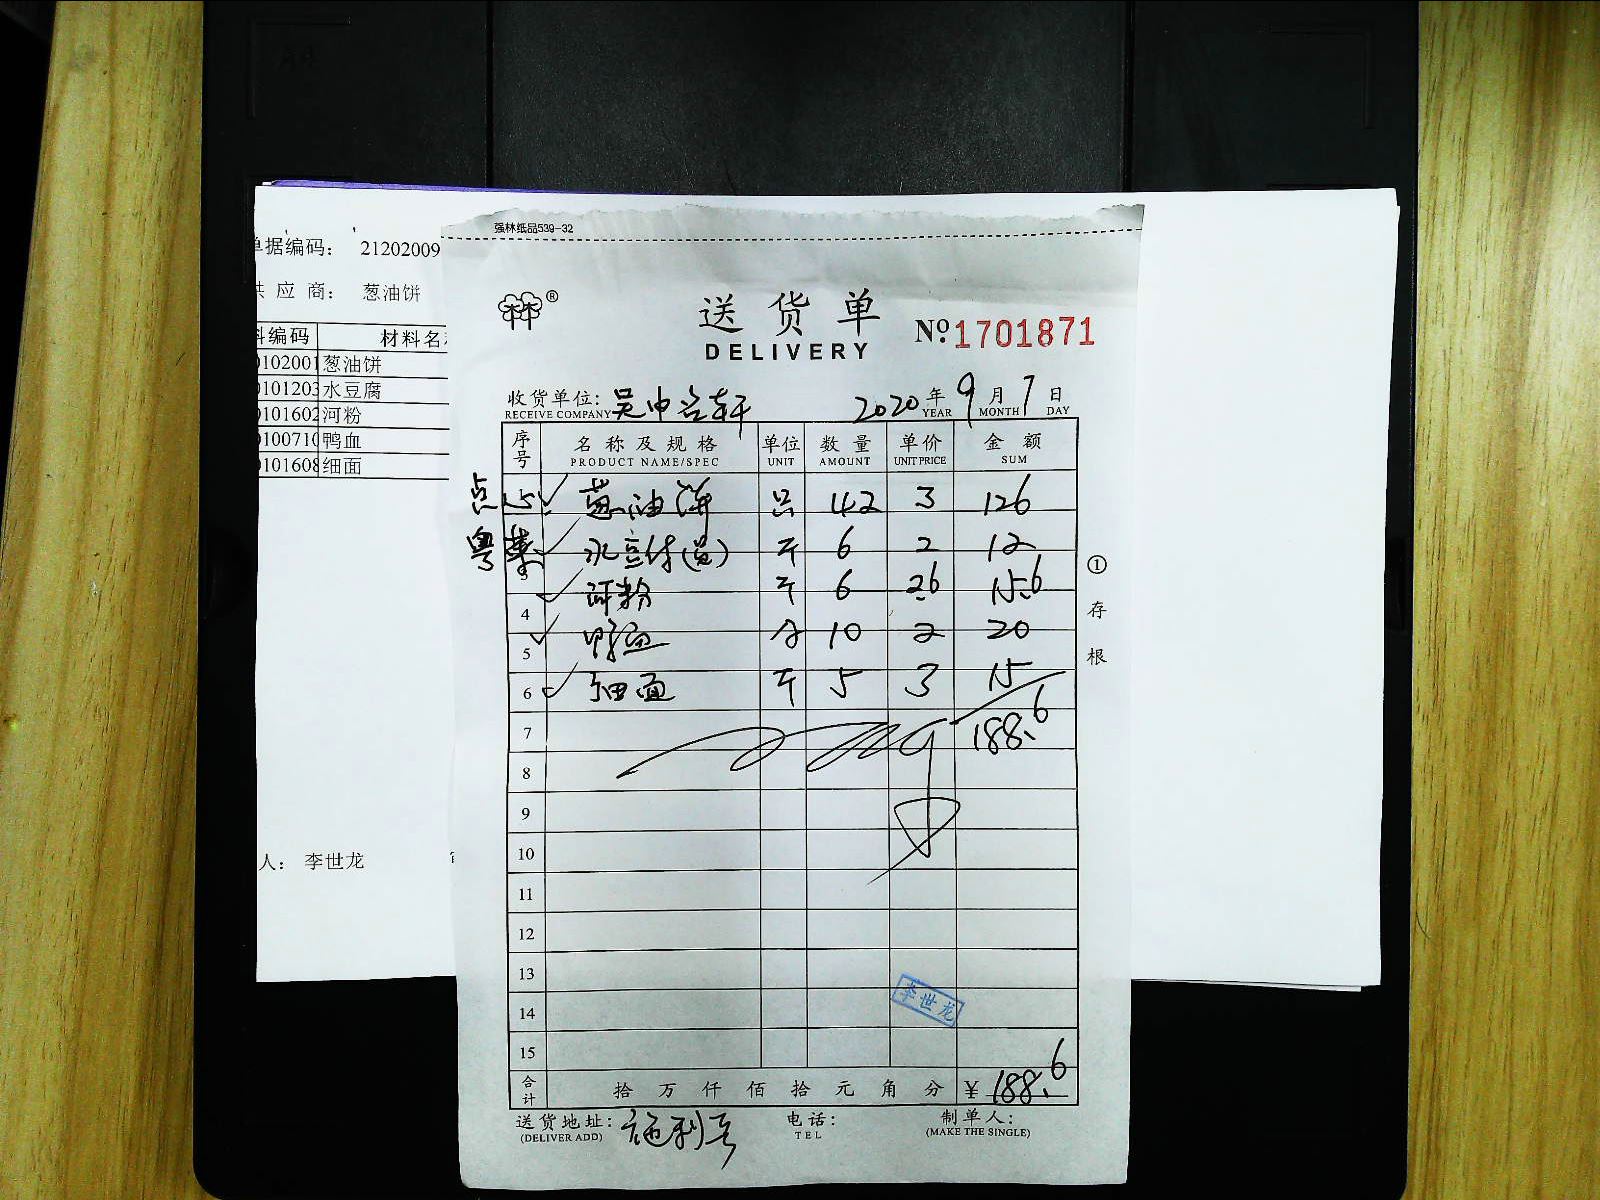 强林纸品539-32
单据编码： 21202009
供 应 商： 葱油饼
料编码 材料名称
0102001 葱油饼
0101203 水豆腐
0101602 河粉
0100710 鸭血
0101608 细面
人： 李世龙
®
送货单
DELIVERY
№ 1701871
收货单位: 吴中 轩 2020 年 9 月 7 日
RECEIVE COMPANY YEAR MONTH DAY
序号 名称及规格 单位 数量 单价 金额
PRODUCT NAME/SPEC UNIT AMOUNT UNIT PRICE SUM
点心 葱油饼 只 42 3 126
粤菜 水豆付 斤 6 2 12
3 河粉 斤 6 2.6 15.6
4 鸭血 10 2 20
5 细面 斤 5 3 15
6
7 188.6
8
9
10
11
12
13
14
李世龙
15
合计 拾 万 仟 佰 拾 元 角 分 ¥ 188.6
送货地址: 电话: 制单人:
(DELIVER ADD) TEL (MAKE THE SINGLE)
① 存根